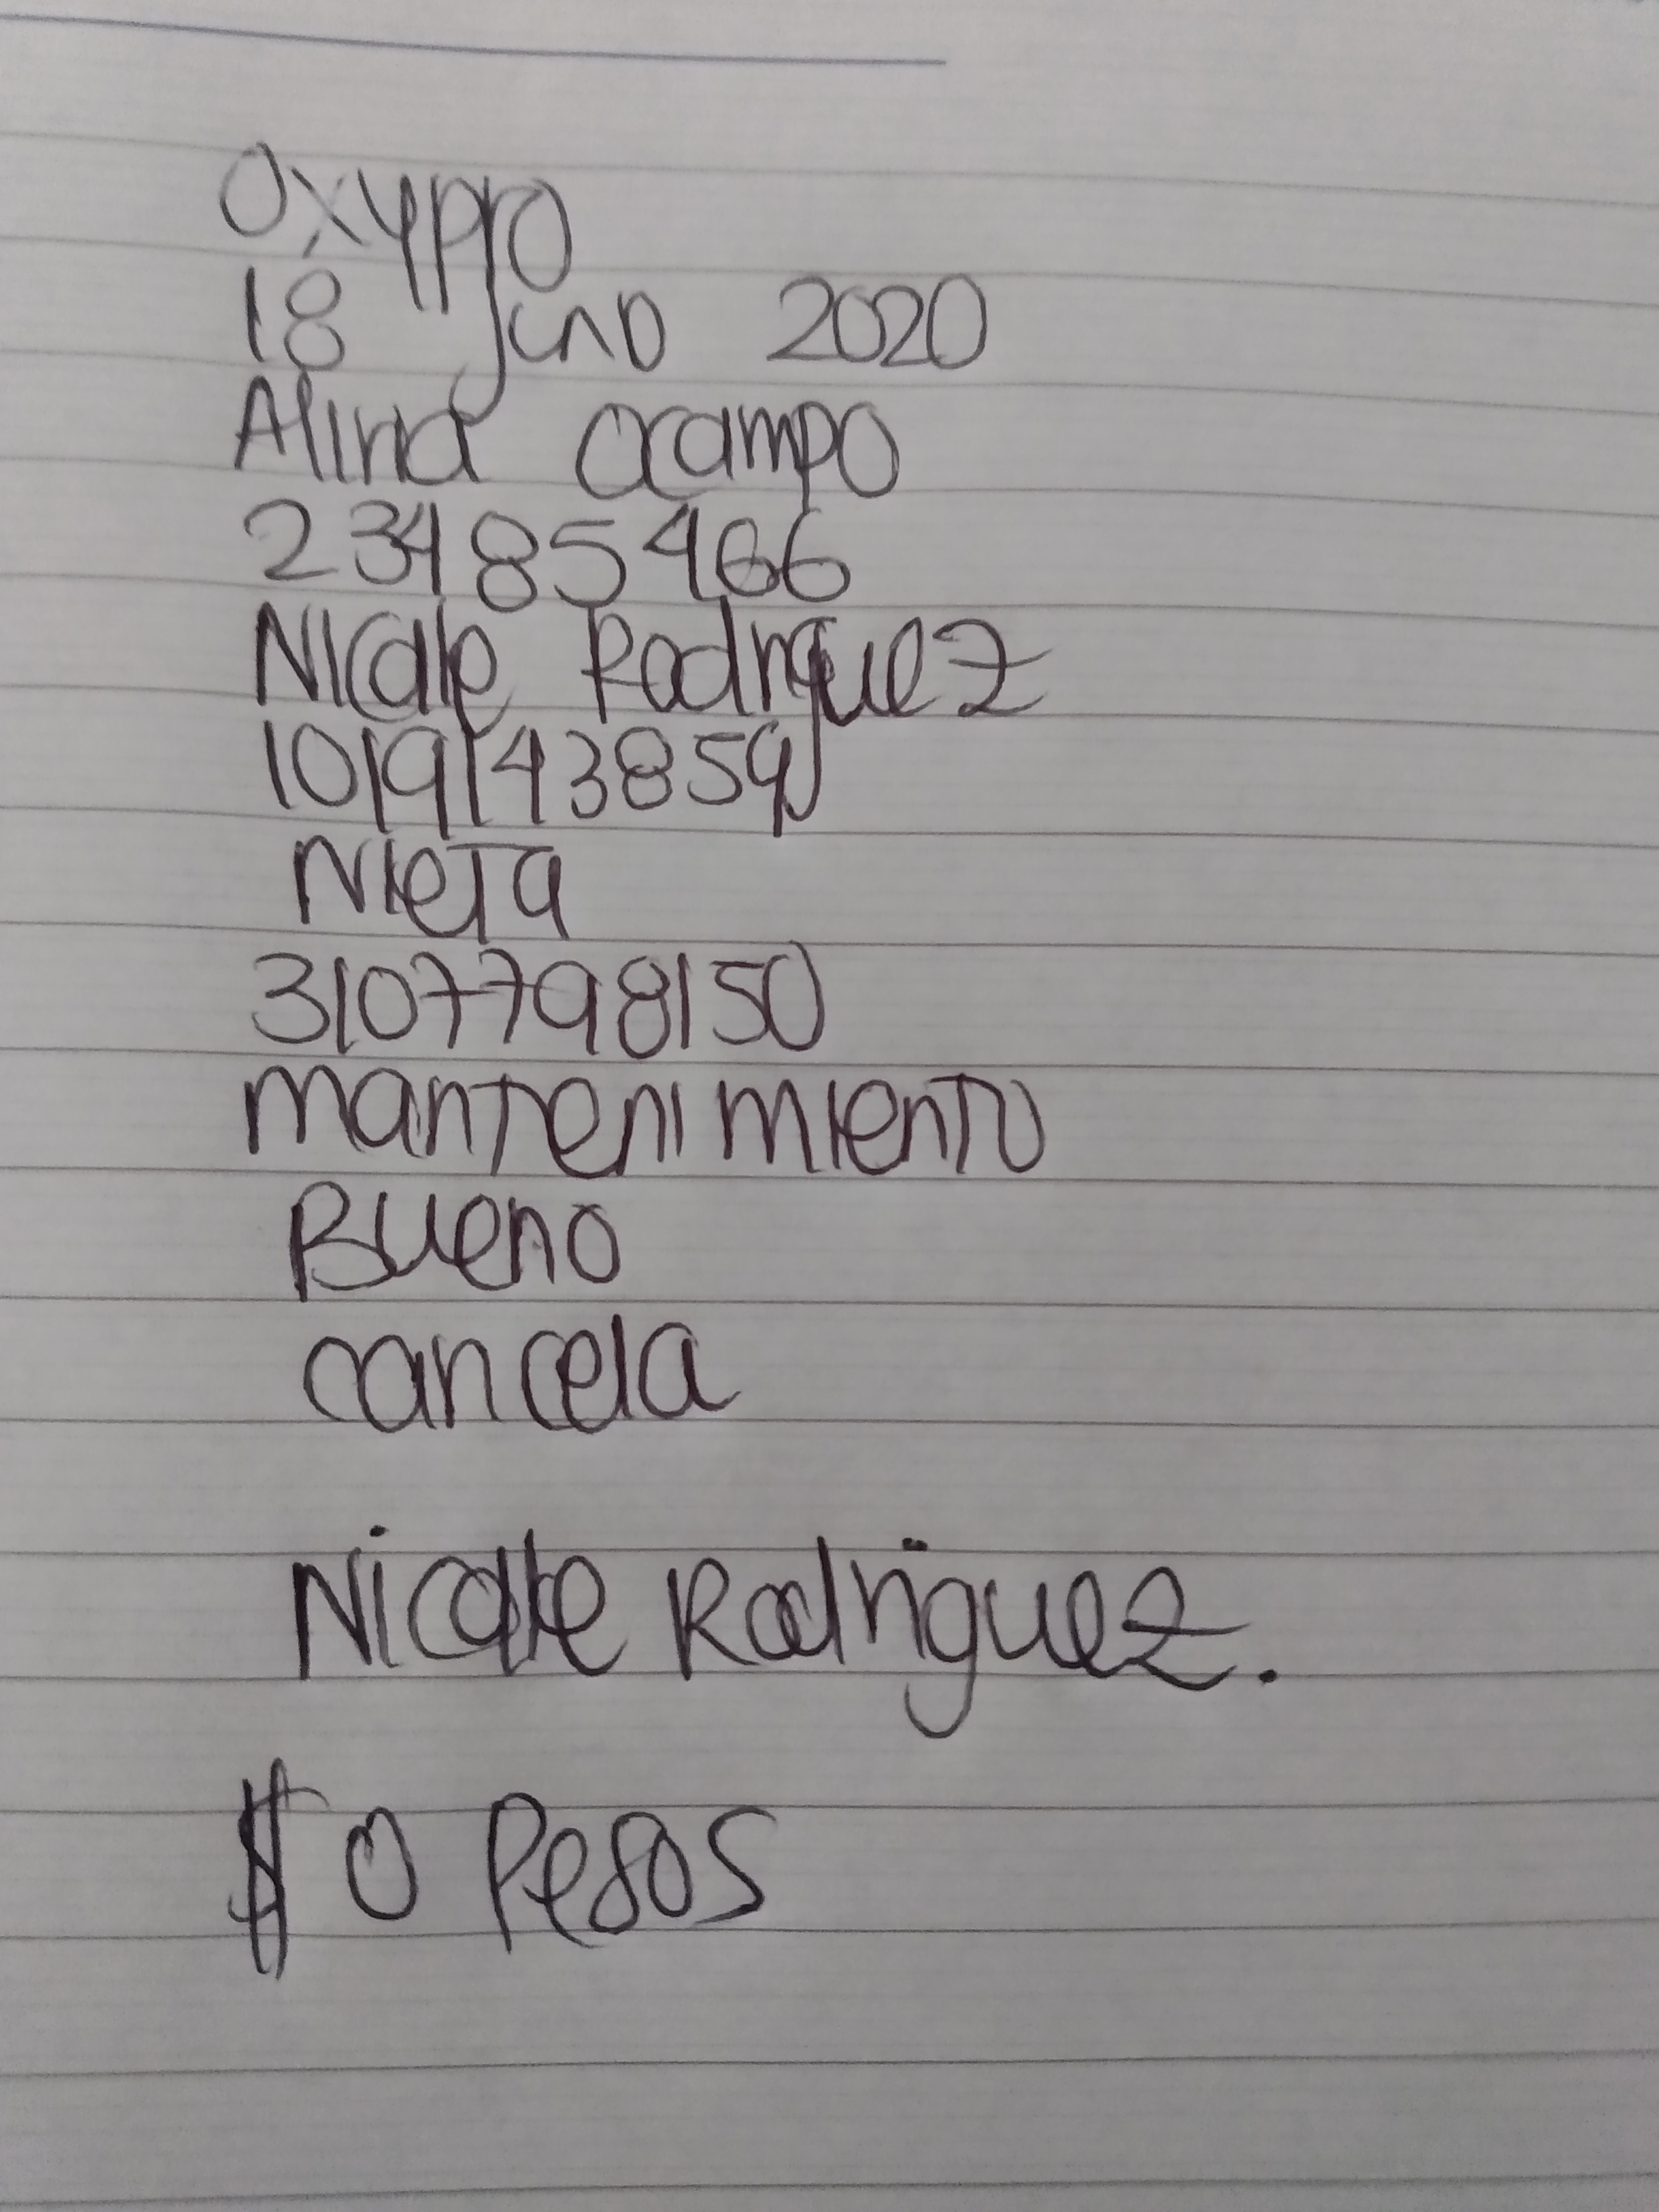 Oxypro
18 Juno 2020
Alina Ocampo
23485466
Nicolle Rodriguez
1019143859
Nieta
3107798150
mantenimiento
Bueno
cancela
Nicolle Rodriguez.
$ 0 Pesos